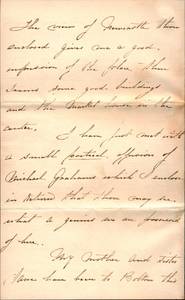 The view of Newcastle thou
enclosed gives me a good
impression of the place, there
seems some good buildings
and the market house in the
center.
I have just met with
a small poetical effusion of
Michael Grahams which I enclose
in that thou may see
what a genius we are possessed
of here.
My Mother and Sister
Jane have been to Bolton this